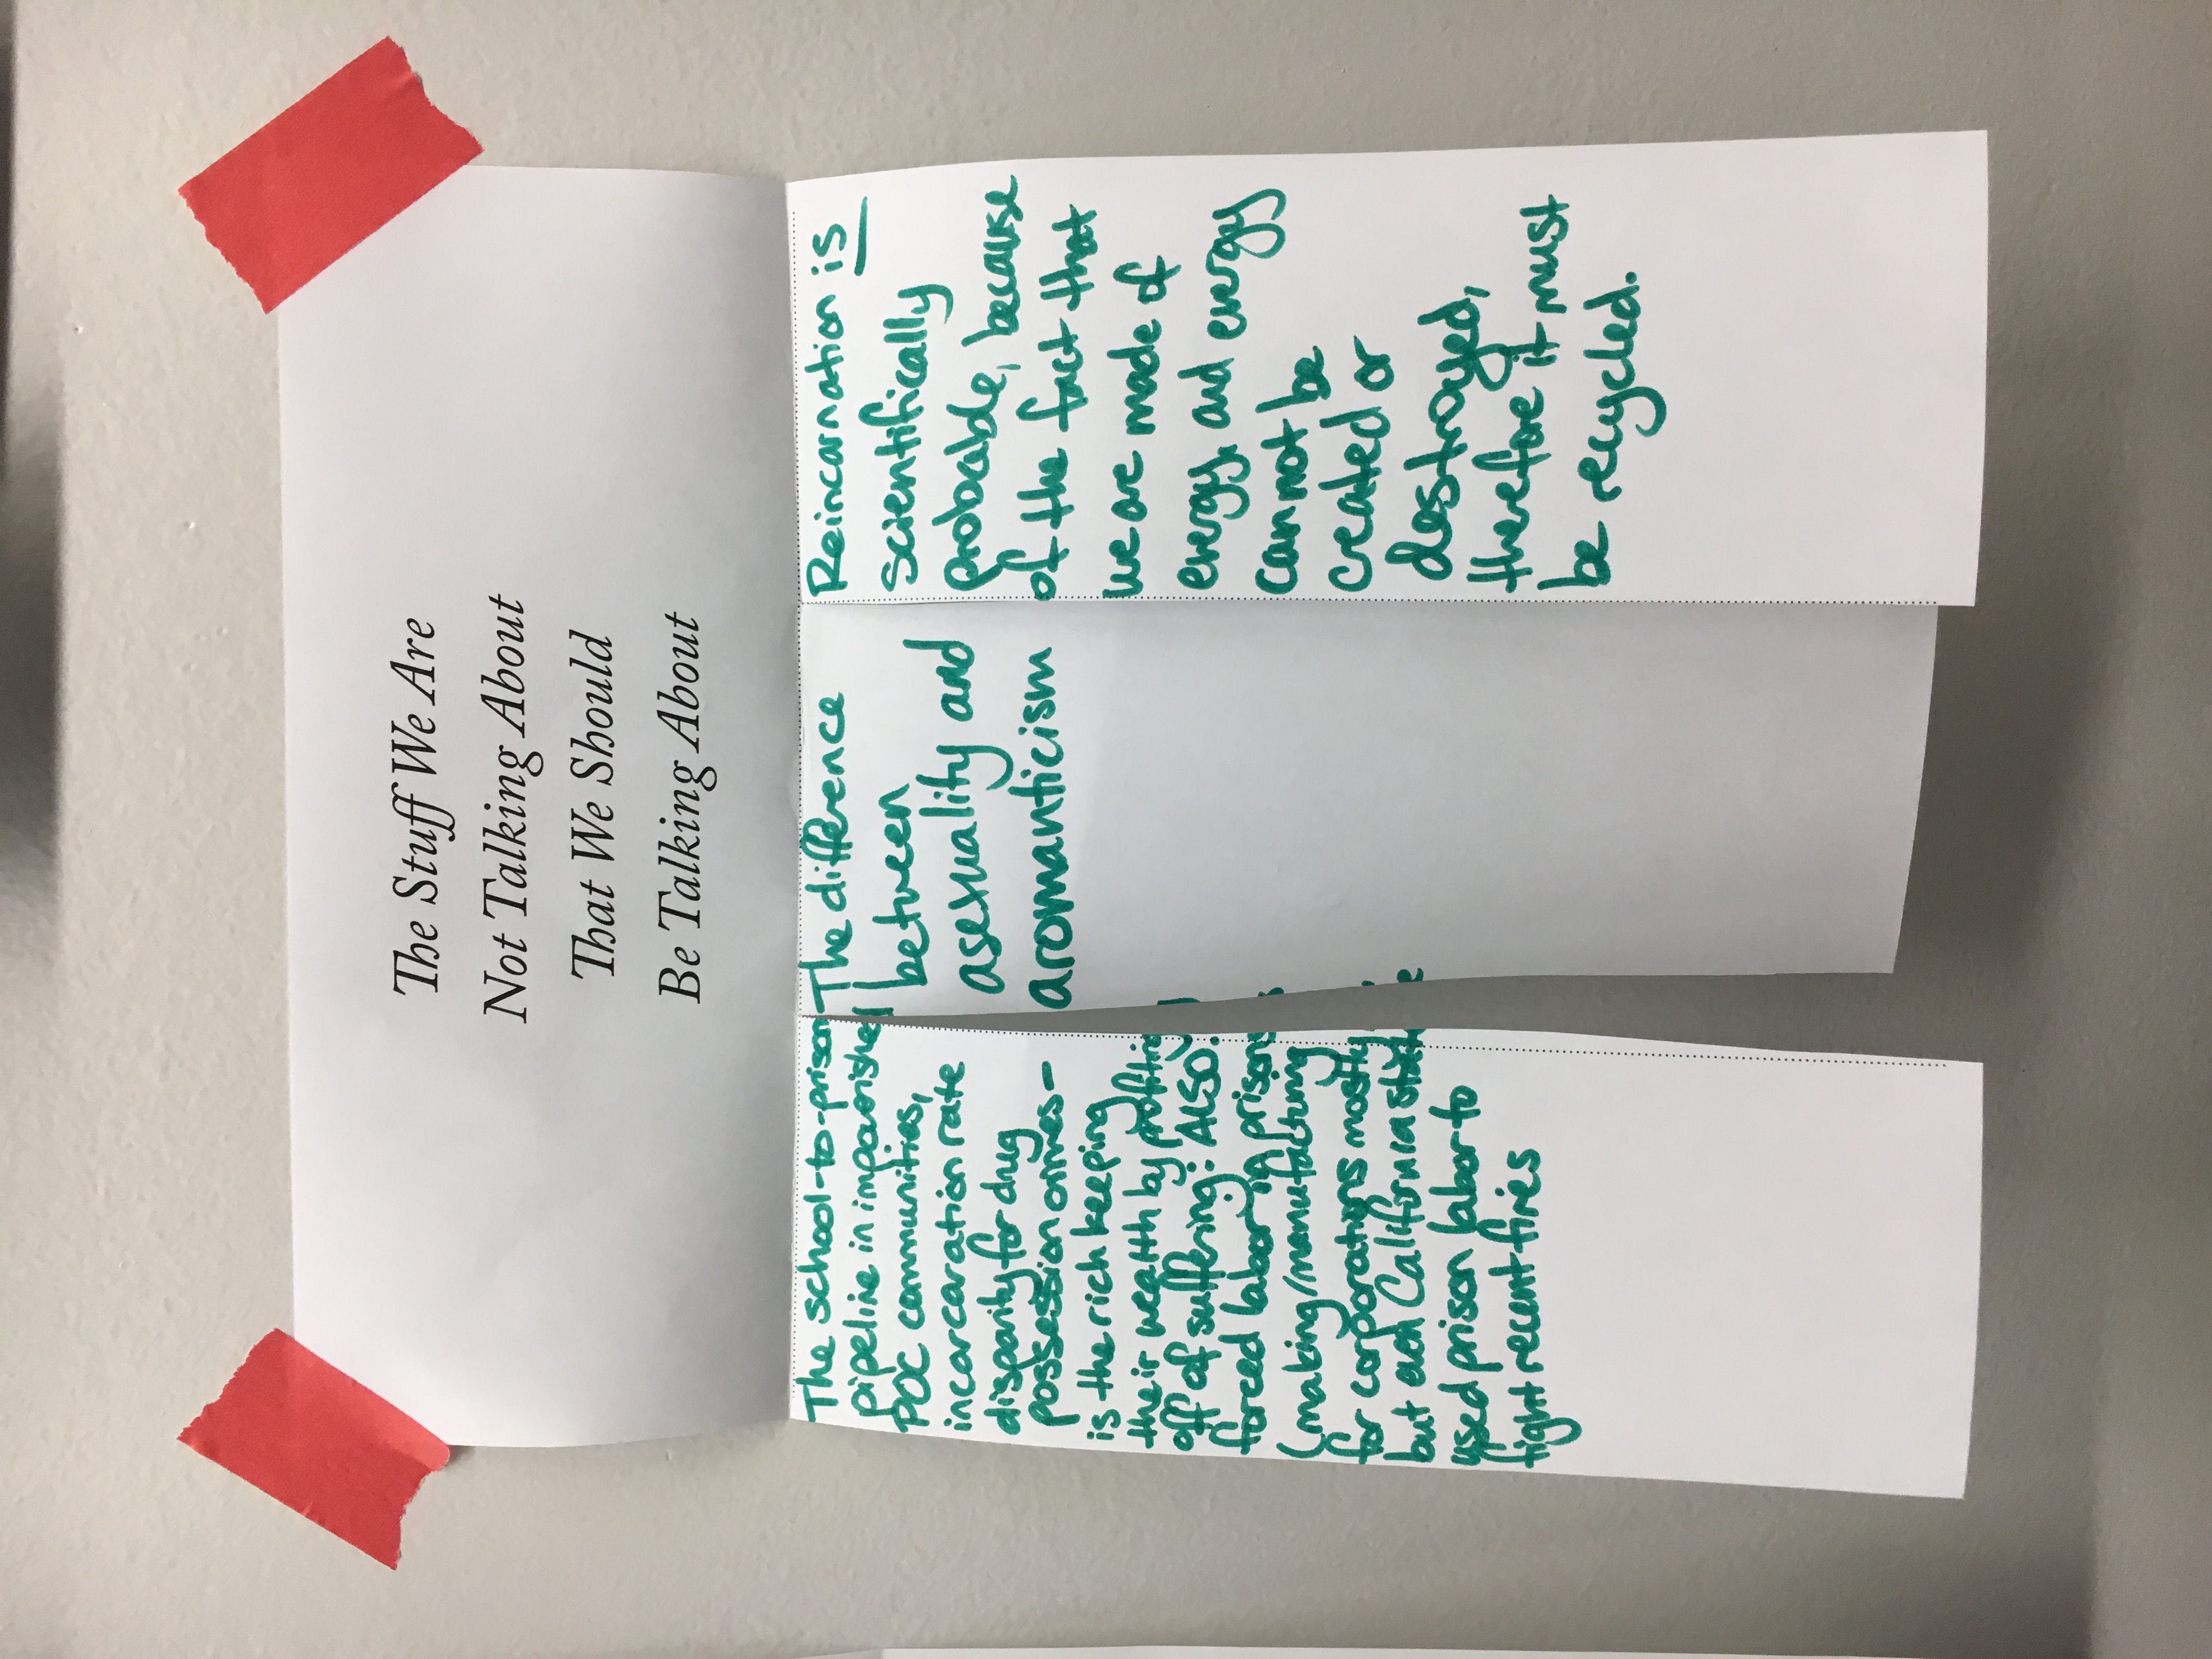 The Stuff We Are
Not Talking About
That We Should
Be Talking About
The school-to-prison
pipeline in impoverished
POC communities,
incarcaration rate
disparity for drug
possession crimes-
is the rich keeping
their wealth by profiting
off of suffering: ALSO:
forced labor in prisons
(making/manufacturing
for corporations mostly
but and California state
used prison labor to
fight recent fires
The difference
between
asexuality and
aromanticism
Reincarnation is
scientifically
probable, because
of the fact that
we are made of
energy, and energy
cannot be
created or
destroyed,
therefore it must
be recycled.